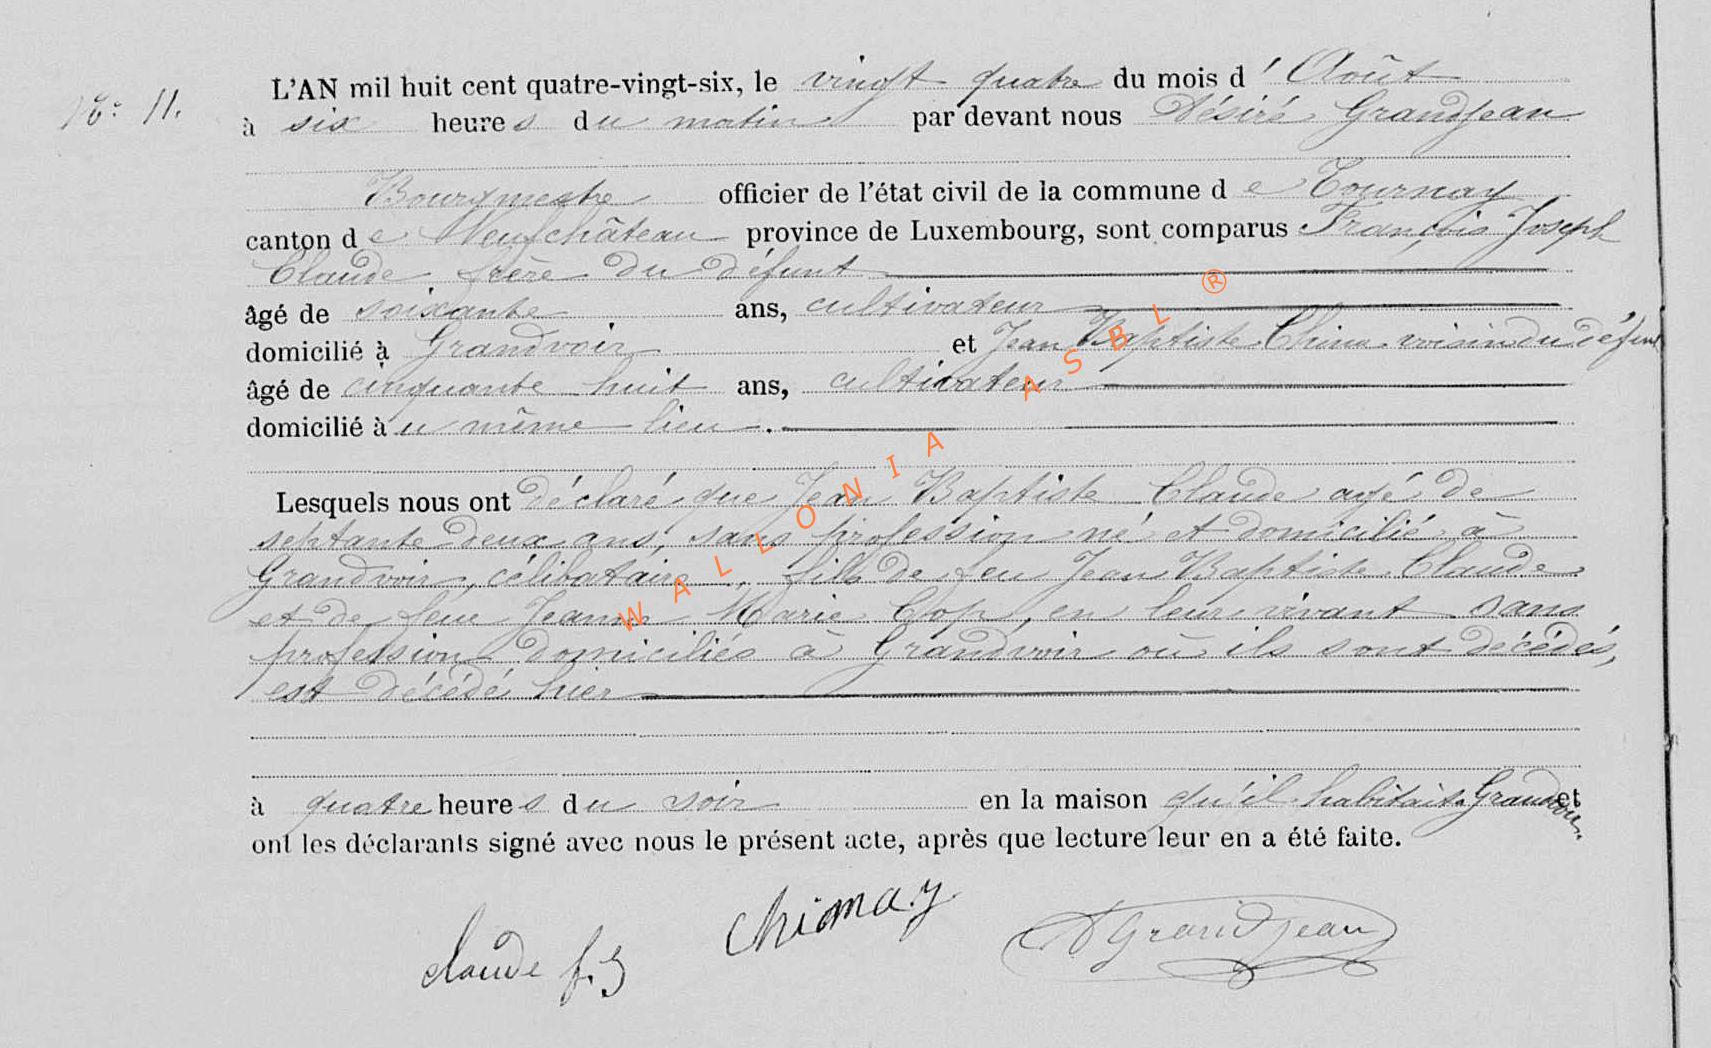 N° 11.
L'AN mil huit cent quatre-vingt-six, le vingt quatre du mois d' Août
à six heures du matin par devant nous Désiré Grandjean
Bourgmestre officier de l'état civil de la commune de Tournay
canton de Neufchâteau province de Luxembourg, sont comparus François Joseph
Claude frère du défunt
âgé de soixante ans, cultivateur
domicilié à Grandvoir et Jean Baptiste voisin du défunt
âgé de cinquante huit ans, cultivateur
domicilié au même lieu.
Lesquels nous ont déclaré que Jean Baptiste Claude agé de
septante deux ans, sans profession né et domicilié à
Grandvoir, célibataire, fils de feu Jean Baptiste Claude
et de feue Jeanne Marie Cop, en leur vivant sans
profession domiciliés à Grandvoir où ils sont décédés,
est décédé hier
à quatre heures du soir en la maison qu'il habitait à Grandvoir et
ont les déclarants signé avec nous le présent acte, après que lecture leur en a été faite.
claude f. J
Chimay
D Grandjean
WALLONIA ASBL ®